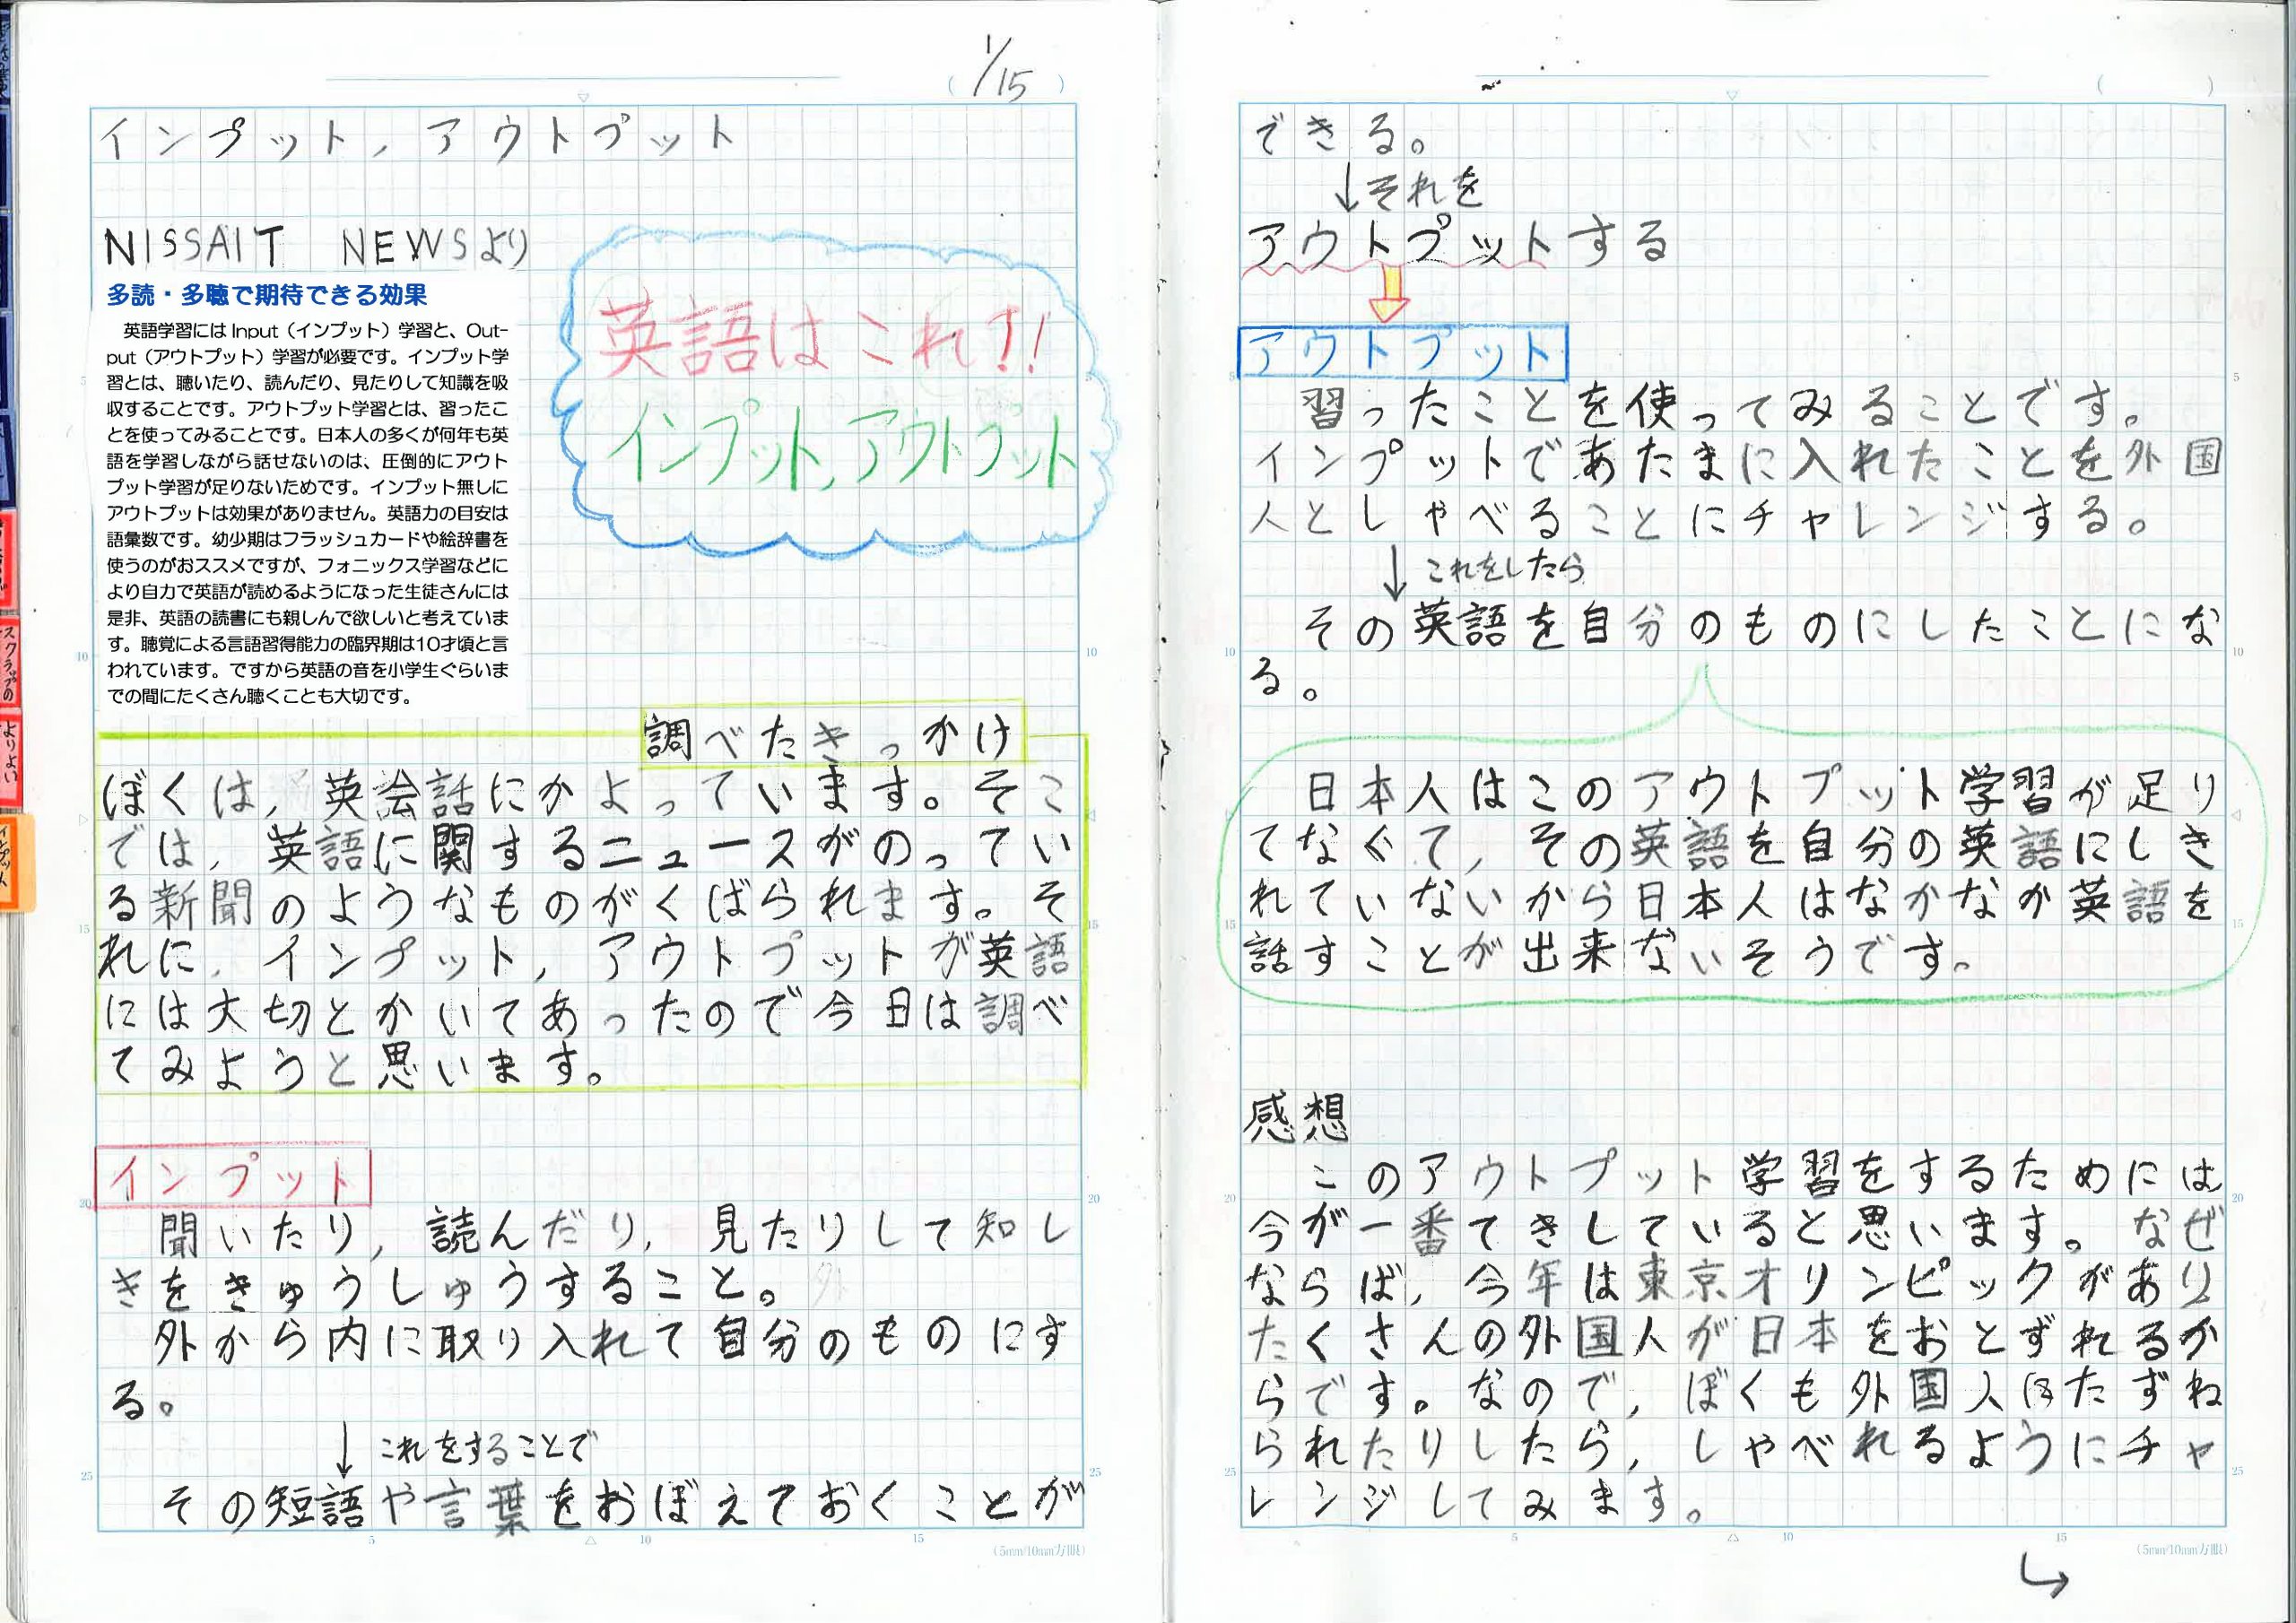 1/15
インプット,アウトプット
NISSAIT NEWSより
多読・多聴で期待できる効果
英語学習には Input（インプット）学習と、Out-
put（アウトプット）学習が必要です。インプット学
習とは、聴いたり、読んだり、見たりして知識を吸
収することです。アウトプット学習とは、習ったこ
とを使ってみることです。日本人の多くが何年も英
語を学習しながら話せないのは、圧倒的にアウト
プット学習が足りないためです。インプット無しに
アウトプットは効果がありません。英語力の目安は
語彙数です。幼少期はフラッシュカードや絵辞書を
使うのがおススメですが、フォニックス学習などに
より自力で英語が読めるようになった生徒さんには
是非、英語の読書にも親しんで欲しいと考えていま
す。聴覚による言語習得能力の臨界期は10才頃と言
われています。ですから英語の音を小学生ぐらいま
での間にたくさん聴くことも大切です。
英語はこれ!!
インプット,アウトプット
調べたきっかけ
ぼくは,英会話にかよっています。そこ
では,英語に関するニュースがのってい
る新聞のようなものがくばられます。そ
れに,インプット,アウトプットが英語
には大切とかいてあったので今日は調べ
てみようと思います。
インプット
聞いたり,読んだり,見たりして知し
きをきゅうしゅうすること。
外から内に取り入れて自分のものにす
る。
↓これをすることで
その短語や言葉をおぼえておくことが
(5mm/10mm方眼)
できる。
↓それを
アウトプットする
アウトプット
習ったことを使ってみることです。
インプットであたまに入れたことを外国
人としゃべることにチャレンジする。
↓これをしたら
その英語を自分のものにしたことにな
る。
日本人はこのアウトプット学習が足り
てなくて,その英語を自分の英語にしき
れていないから日本人はなかなか英語を
話すことが出来ないそうです。
感想
このアウトプット学習をするためには
今が一番てきしていると思います。なぜ
ならば,今年は東京オリンピックがあり
たくさんの外国人が日本をおとずれるか
らです。なので,ぼくも外国人にたずね
られたりしたら,しゃべれるようにチャ
レンジしてみます。
(5mm/10mm方眼)
スクラップの
よりよい